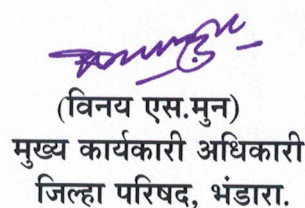 (विनय एस.मुन)
मुख्य कार्यकारी अधिकारी
जिल्हा परिषद, भंडारा.